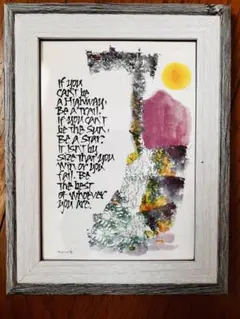 If you
can't be
a Highway,
Be a Trail.
If you can't
be the Sun,
Be a Star.
It isn't by
size that you
win or you
fail. Be
the best
of whoever
you are.